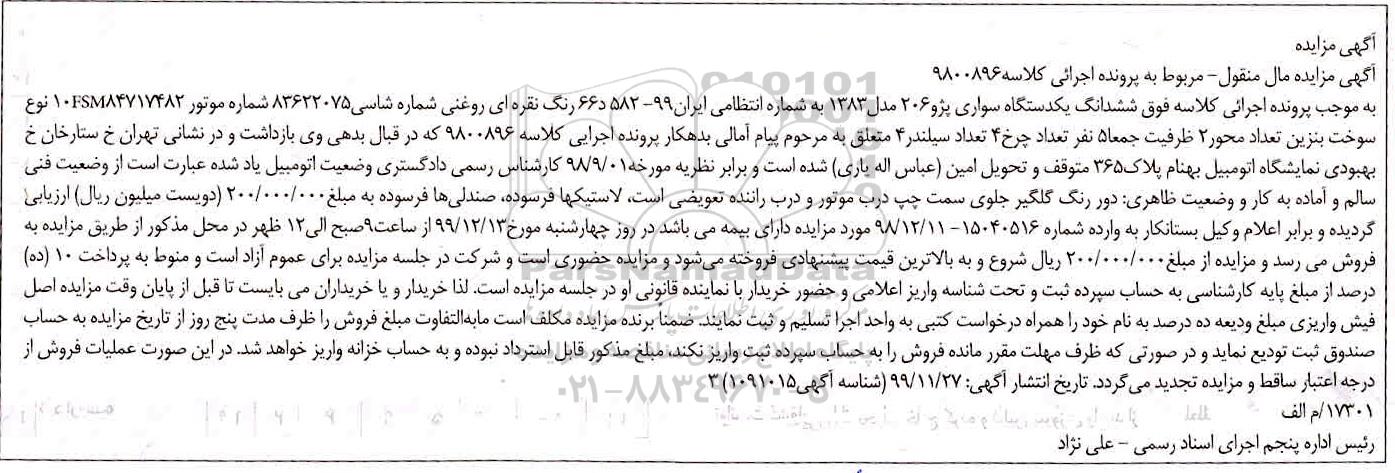 آگهی مزایده
آگهی مزایده مال منقول- مربوط به پرونده اجرائی کلاسه۹۸۰۰۸۹۶
به موجب پرونده اجرائی کلاسه فوق ششدانگ یکدستگاه سواری پژو۲۰۶ مدل۱۳۸۳ به شماره انتظامی ایران۹۹- ۵۸۲ د۶۶ رنگ نقره ای روغنی شماره شاسی۸۳۶۲۲۰۷۵ شماره موتور ۱۰FSM۸۴۷۱۷۴۸۲ نوع
سوخت بنزین تعداد محور۲ ظرفیت جمعا۵ نفر تعداد چرخ۴ تعداد سیلندر۴ متعلق به مرحوم پیام آمالی بدهکار پرونده اجرایی کلاسه ۹۸۰۰۸۹۶ که در قبال بدهی وی بازداشت و در نشانی تهران خ ستارخان خ
بهبودی نمایشگاه اتومبیل بهنام پلاک۳۶۵ متوقف و تحویل امین (عباس اله یاری) شده است و برابر نظریه مورخه۹۸/۹/۰۱ کارشناس رسمی دادگستری وضعیت اتومبیل یاد شده عبارت است از وضعیت فنی
سالم و آماده به کار و وضعیت ظاهری: دور رنگ گلگیر جلوی سمت چپ درب موتور و درب راننده تعویضی است، لاستیکها فرسوده، صندلی‌ها فرسوده به مبلغ۲۰۰/۰۰۰/۰۰۰ (دویست میلیون ریال) ارزیابی
گردیده و برابر اعلام وکیل بستانکار به وارده شماره ۱۵۰۴۰۵۱۶- ۹۸/۱۲/۱۱ مورد مزایده دارای بیمه می باشد در روز چهارشنبه مورخ۹۹/۱۲/۱۳ از ساعت۹صبح الی۱۲ ظهر در محل مذکور از طریق مزایده به
فروش می رسد و مزایده از مبلغ۲۰۰/۰۰۰/۰۰۰ ریال شروع و به بالاترین قیمت پیشنهادی فروخته می‌شود و مزایده حضوری است و شرکت در جلسه مزایده برای عموم آزاد است و منوط به پرداخت ۱۰ (ده)
درصد از مبلغ پایه کارشناسی به حساب سپرده ثبت و تحت شناسه واریز اعلامی و حضور خریدار یا نماینده قانونی او در جلسه مزایده است. لذا خریدار و یا خریداران می بایست تا قبل از پایان وقت مزایده اصل
فیش واریزی مبلغ ودیعه ده درصد به نام خود را همراه درخواست کتبی به واحد اجرا تسلیم و ثبت نمایند. ضمنا برنده مزایده مکلف است مابه‌التفاوت مبلغ فروش را ظرف مدت پنج روز از تاریخ مزایده به حساب
صندوق ثبت تودیع نماید و در صورتی که ظرف مهلت مقرر مانده فروش را به حساب سپرده ثبت واریز نکند، مبلغ مذکور قابل استرداد نبوده و به حساب خزانه واریز خواهد شد. در این صورت عملیات فروش از
درجه اعتبار ساقط و مزایده تجدید می‌گردد. تاریخ انتشار آگهی: ۹۹/۱۱/۲۷ (شناسه آگهی۱۰۹۱۰۱۵) ۳
۱۷۳۰۱/م الف
رئیس اداره پنجم اجرای اسناد رسمی - علی نژاد
ParsNamadData
۰۲۱-۸۸۳۴۹۶۷۰-۵